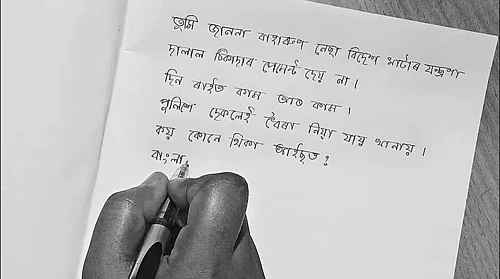 তুমি জাননা বাহারুণ নেছা বিদেশ মার্টার যন্ত্রণা
দালাল ঠিকাদার পেমেন্ট দেয় না।
দিন রাইত কাম আর কাম।
পুলিশে দেকলেই ধৈরা নিয়া যায় থানায়।
কয় কোনে থিকা আইছত?
বাংলা